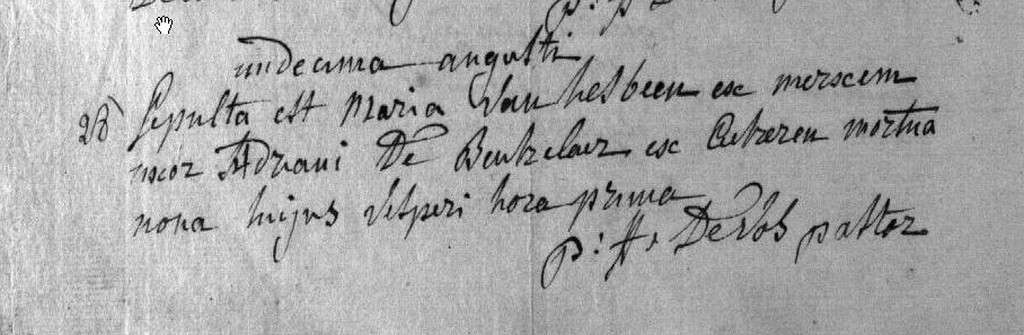 undecima augusti
28) Sepulta est Maria Van hesbeen ex merscem
uxor Adriani De Beukelaer ex Cutseren mortua
nona hujus Vesperi hora prima
p: H: De Vos pastor